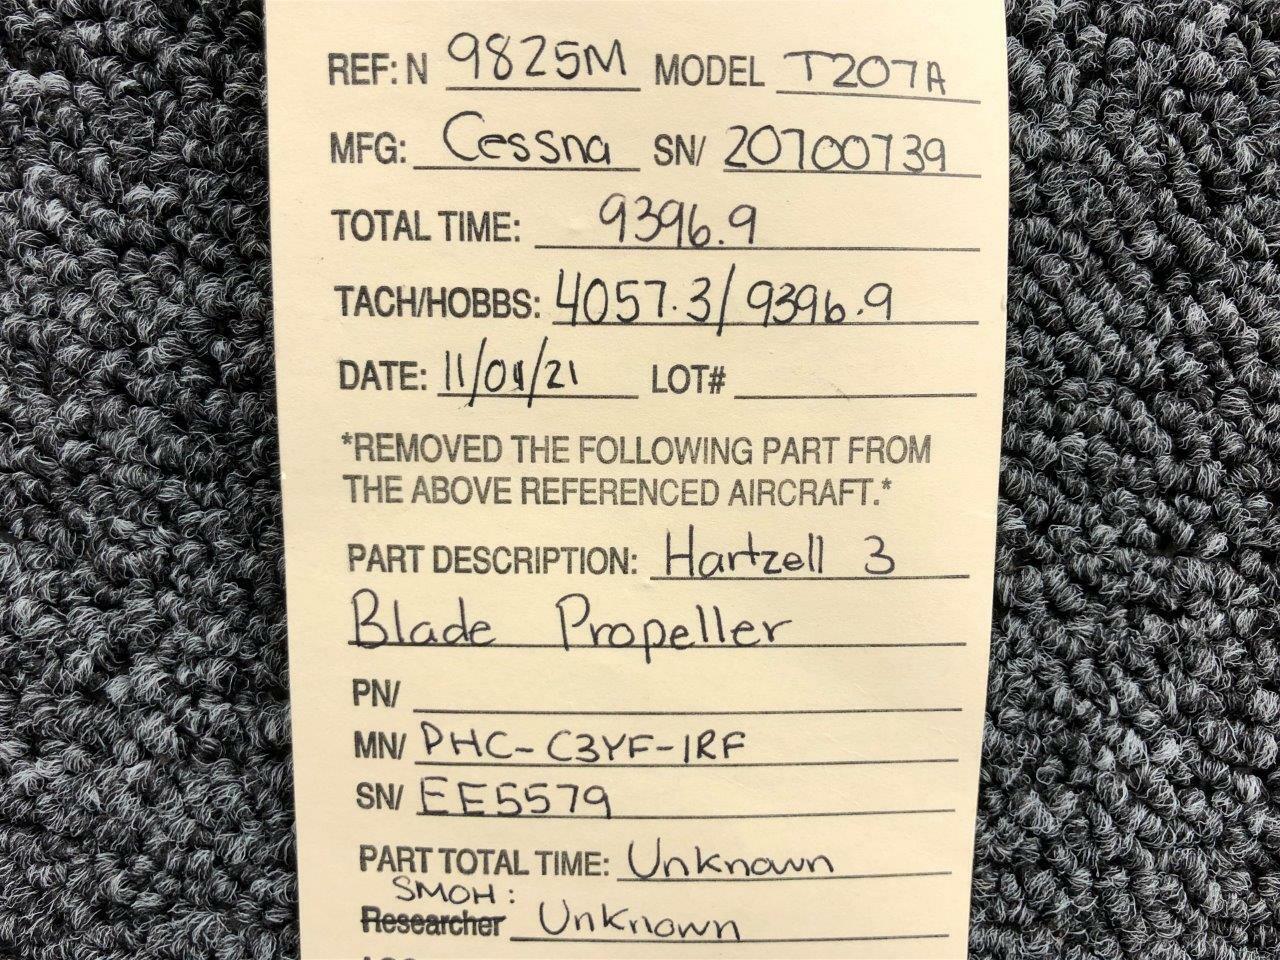 REF: N 9825M MODEL T207A
MFG: Cessna SN/ 20700739
TOTAL TIME: 9396.9
TACH/HOBBS: 4057.3/9396.9
DATE: LOT#
*REMOVED THE FOLLOWING PART FROM
THE ABOVE REFERENCED AIRCRAFT.*
PART DESCRIPTION: Hartzell 3
Blade Propeller
PN/
MN/ PHC-C3YF-1RF
SN/ EE5579
PART TOTAL TIME: Unknown
SMOH:
Researcher Unknown